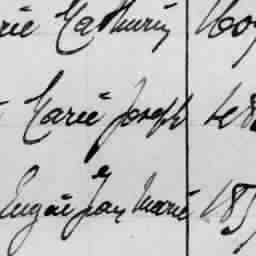 rie Mathurin
Marie Joseph
Eugène Jean Marie 185